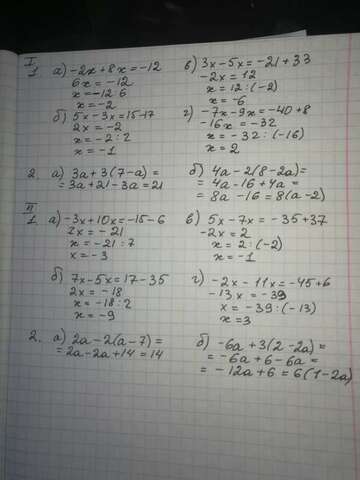 I
1 а) -2x+8x=-12
6x=-12
x=-12:6
x=-2
б) 5x-3x=15-17
2x=-2
x=-2:2
x=-1
в) 3x-5x=-21+33
-2x=12
x=12:(-2)
x=-6
г) -7x-9x=-40+8
-16x=-32
x=-32:(-16)
x=2
2. а) 3a+3(7-a)=
=3a+21-3a=21
б) 4a-2(8-2a)=
=4a-16+4a=
=8a-16=8(a-2)
II
1 а) -3x+10x=-15-6
7x=-21
x=-21:7
x=-3
б) 7x-5x=17-35
2x=-18
x=-18:2
x=-9
в) 5x-7x=-35+37
-2x=2
x=2:(-2)
x=-1
г) -2x-11x=-45+6
-13x=-39
x=-39:(-13)
x=3
2. а) 2a-2(a-7)=
=2a-2a+14=14
б) -6a+3(2-2a)=
=-6a+6-6a=
=-12a+6=6(1-2a)